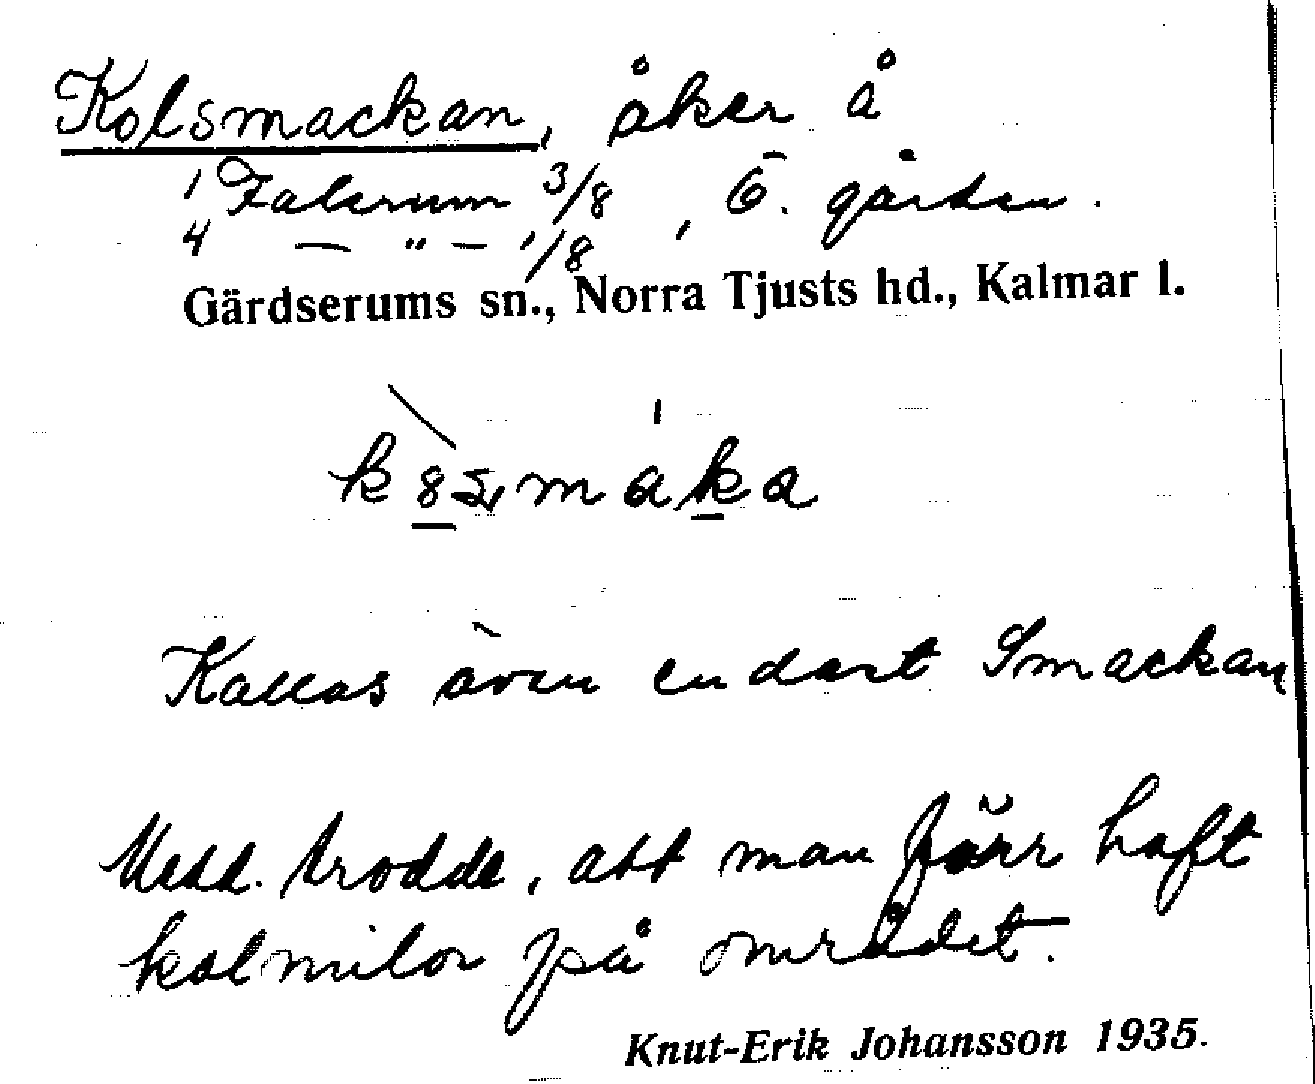 Kolsmackan, åker å
1 Falerum 3/8, Ö. gården.
4 — " — 1/8
Gärdserums sn., Norra Tjusts hd., Kalmar l.
Kallas även endast Smackan
Medd. trodde, att man förr haft
kolmilor på området.
Knut-Erik Johansson 1935.